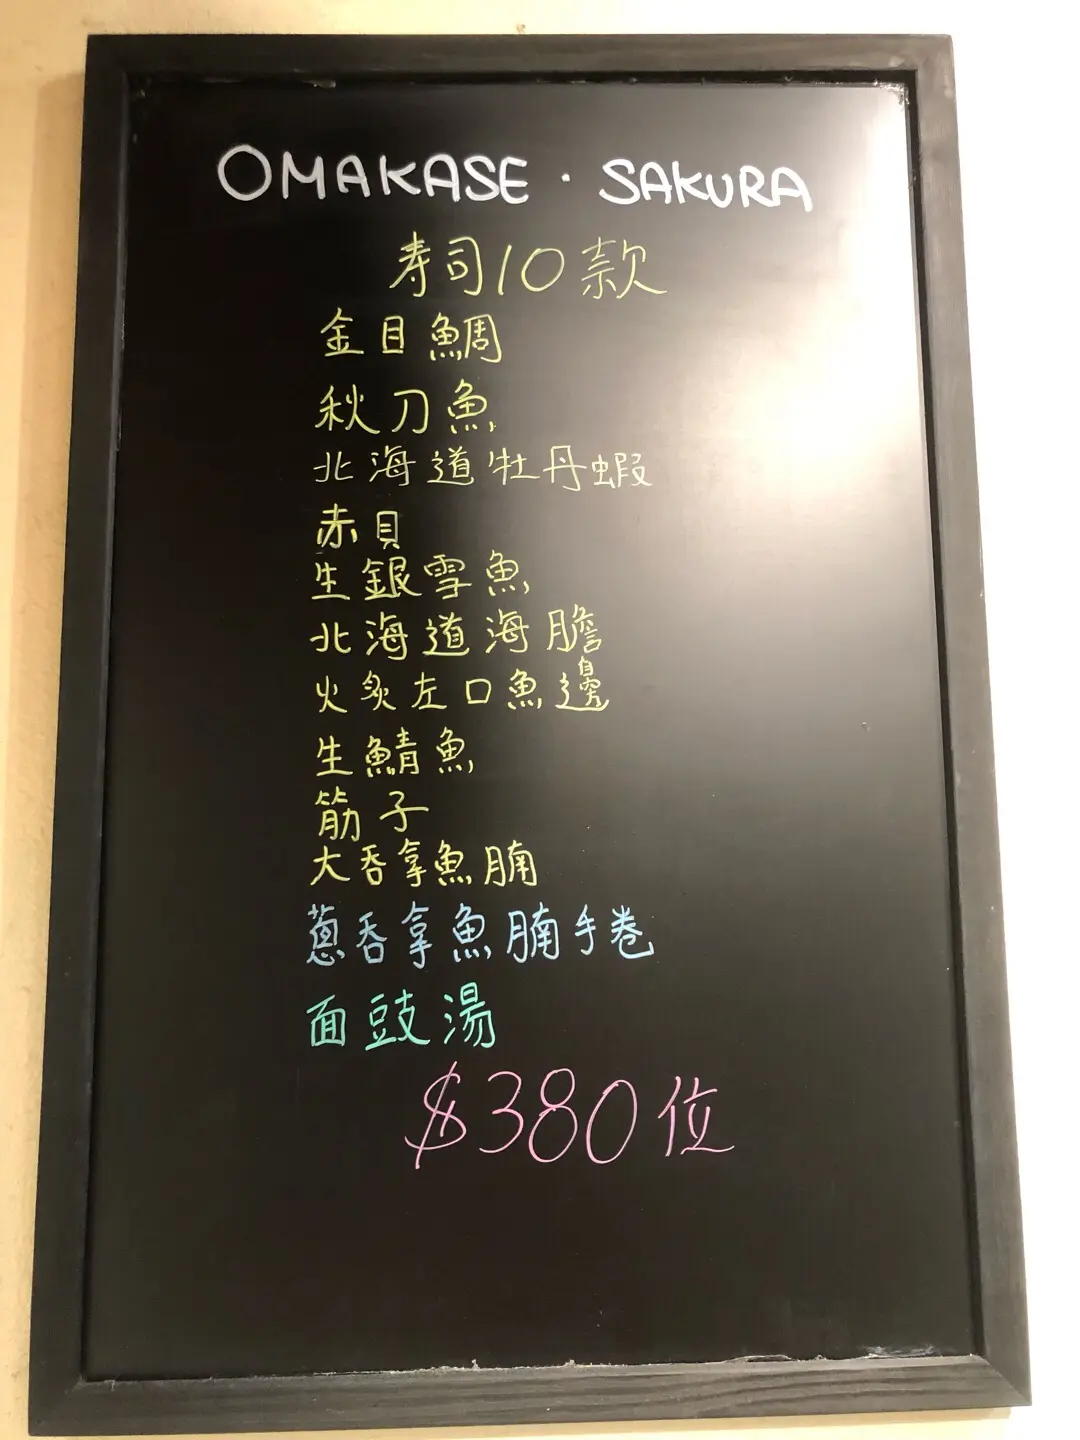 OMAKASE · SAKURA
寿司10款
金目鯛
秋刀魚
北海道牡丹蝦
赤貝
生銀雪魚
北海道海膽
火炙左口魚邊
生鯖魚
筋子
大吞拿魚腩
蔥吞拿魚腩手卷
面豉湯
$380位